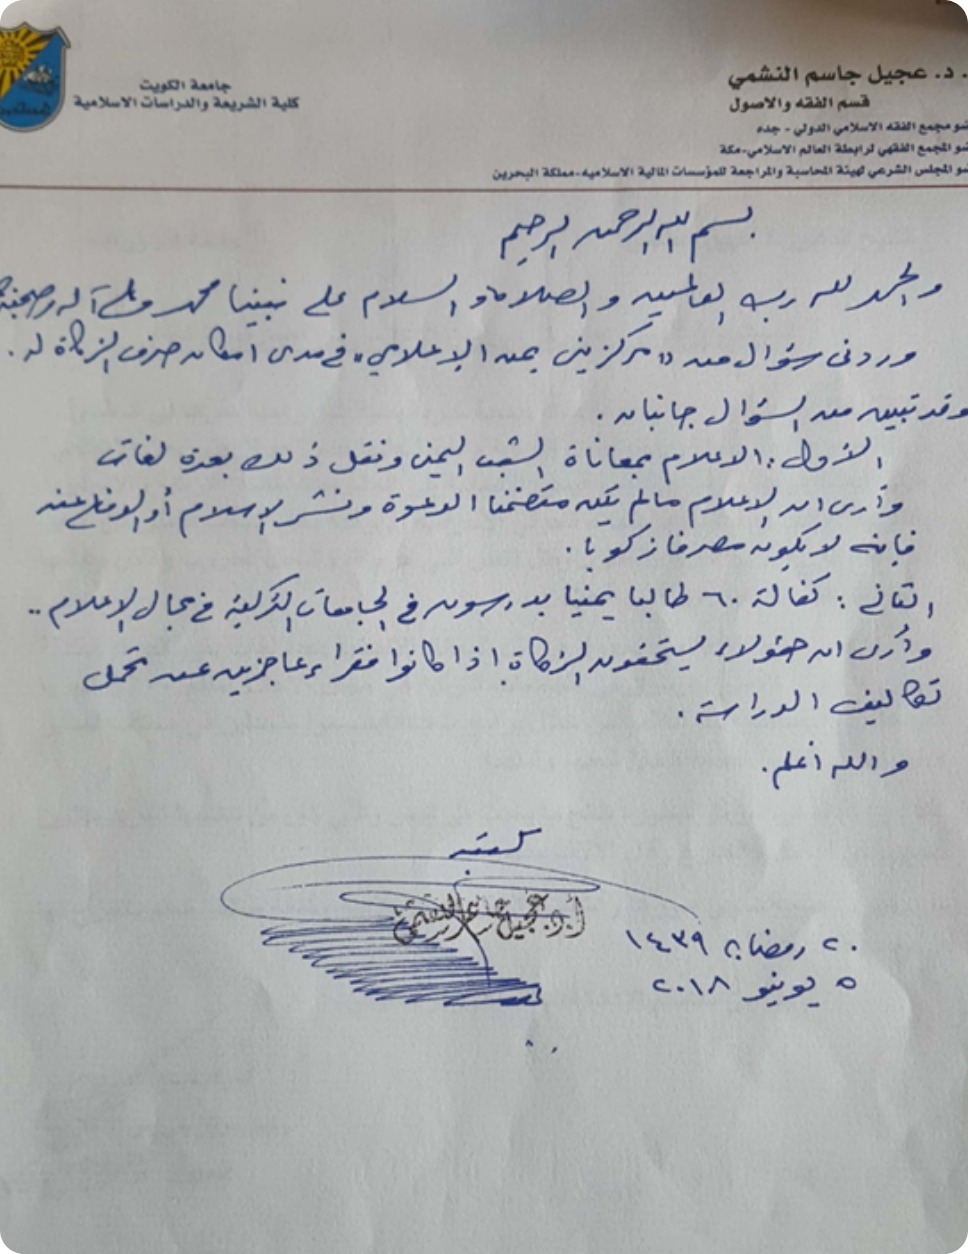 . د. عجيل جاسم النشمي
قسم الفقه والاصول
ضو مجمع الفقه الاسلامي الدولي - جده
ضو المجمع الفقهي لرابطة العالم الاسلامي-مكة
ضو المجلس الشرعي لهيئة المحاسبة والمراجعة للمؤسسات المالية الاسلاميه-مملكة البحرين
جامعة الكويت
كلية الشريعة والدراسات الاسلامية
بسم الله الرحمن الرحيم
والحمد لله رب العالمين والصلاة والسلام على نبينا محمد وعلى آله وصحبه
وردني سؤال من "مركز بني يمن الإعلامي" في مدى امكان صرف الزكاة له .
وقد تبين من السؤال جانبان .
الأول : الاعلام بمعاناة الشعب اليمني ونقل ذلك بعدة لغات
وأرى ان الاعلام مالم يكن متضمنا الدعوة ونشر الإسلام أو الدفاع عنه
فإنه لا يكون مصرفا زكويا .
الثاني : كفالة ٦٠ طالبا يمنيا يدرسون في الجامعات التركية في مجال الإعلام ..
وأرى ان هؤلاء يستحقون الزكاة اذا كانوا فقراء عاجزين عن تحمل
تكاليف الدراسة .
والله اعلم .
كتبه
أ.د. عجيل جاسم النشمي
٢٠ رمضان ١٤٣٩
٥ يونيو ٢٠١٨